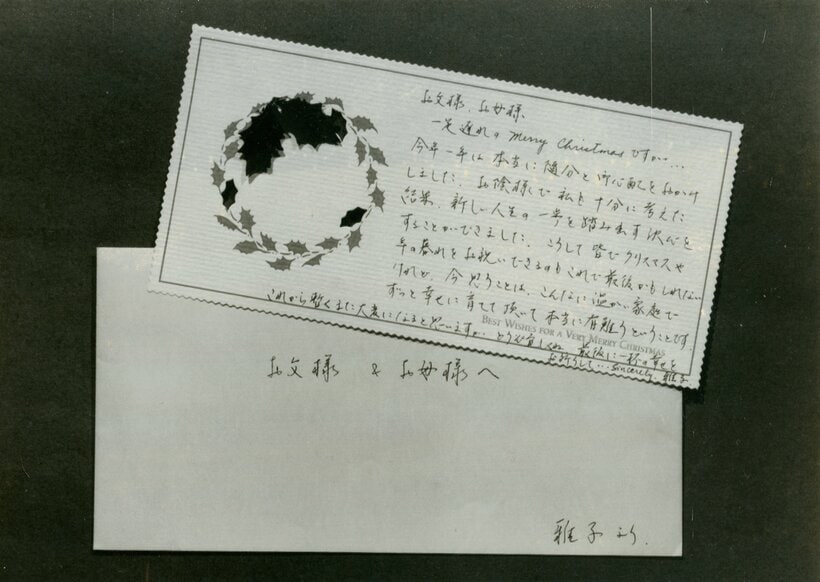 お父様、お母様、
一足遅れの Merry Christmas ですが…
今年一年は本当に随分と御心配をおかけ
しました。お陰様で私も十分に考えた
結果、新しい人生の一歩を踏み出す決心を
することができました。こうして皆でクリスマスや
年の暮れをお祝いできるのもこれで最後かもしれない
けれど、今思うことは、こんなに温かい家庭で
ずっと幸せに育てて頂いて本当に有難うということです
BEST WISHES FOR A VERY MERRY CHRISTMAS
これから暫くまた大変になると思いますが、どうぞ宜しくね 最後に一杯の幸せを
お祈りして… Sincerely, 雅子
お父様 & お母様へ
雅子より.